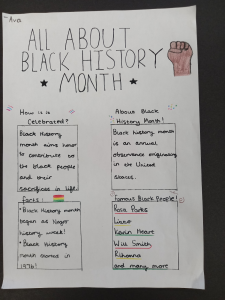 Ava
ALL ABOUT
BLACK HISTORY
MONTH
How is it
Celebrated?
Black History
month aims honor
to contribute to
the black people
and their
sacrifices in life
Facts!
• Black History month
began as Negor
history week!
• Black History
month started in
1976!
About Black
History Month!
Black History month
is an annual
observance originating
in the United
States.
Famous Black People!
Rosa Parks
Lizzo
Kevin Heart
Will Smith
Rihanna
and many more